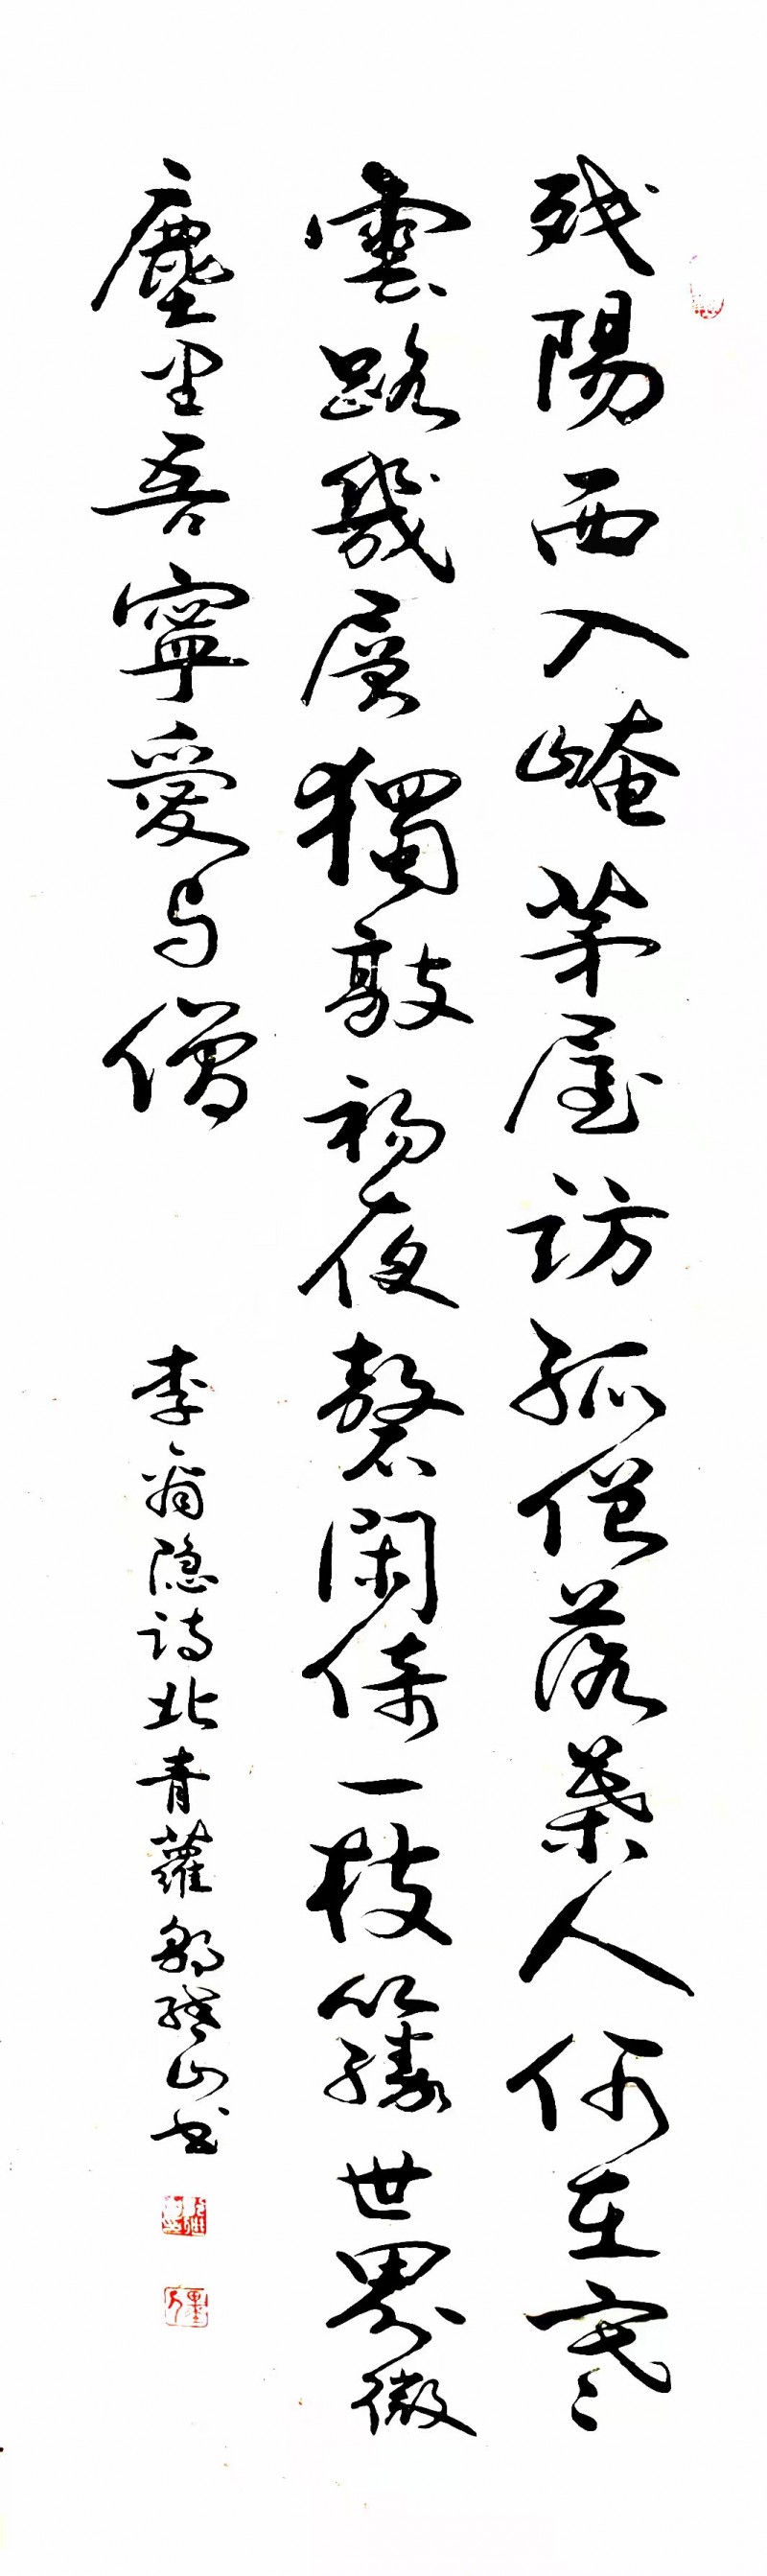 残陽西入崦茅屋訪孤僧落葉人何在寒
雲路幾層獨敲初夜磬閑倚一枝藤世界微
塵里吾寧愛与僧
李商隐詩北青蘿山书